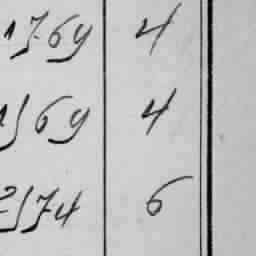 1769 4
1569 4
2574 6